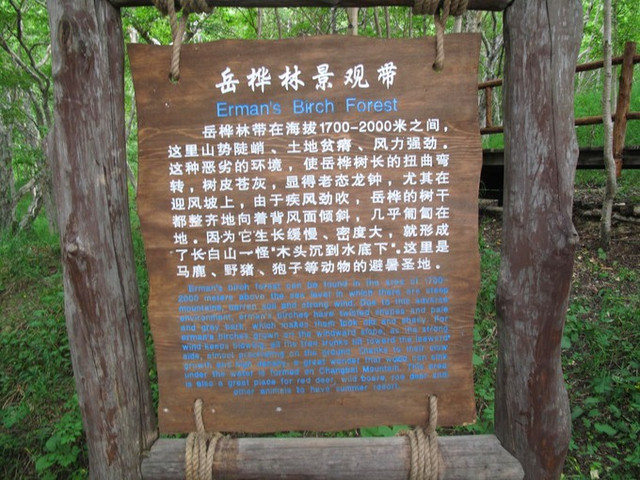 岳桦林景观带
Erman's Birch Forest
岳桦林带在海拔1700-2000米之间，
这里山势陡峭、土地贫瘠、风力强劲。
这种恶劣的环境，使岳桦树长的扭曲弯
转，树皮苍灰，显得老态龙钟，尤其在
迎风坡上，由于疾风劲吹，岳桦的树干
都整齐地向着背风面倾斜，几乎匍匐在
地。因为它生长缓慢、密度大，就形成
了长白山一怪"木头沉到水底下"。这里是
马鹿、野猪、狍子等动物的避暑圣地。
Erman's birch forest can be found in the area of 1700-
2000 meters above the sea level in which there are steep
mountains, barren soil and strong wind. Due to this adverse
environment, erman's birches have twisted shapes and pale
and gray bark, which makes them look old and shaky. For
erman's birches grown on the windward slope, as the strong
wind keeps blowing, all the tree trunks tilt toward the leeward
side, almost on the ground. Thanks to their slow
growth and high density, a great wonder that wood can sink
under the water is formed on Changbai Mountain. This area
is also a great place for red deer, wild boars, roe deer and
other animals to have summer resort.